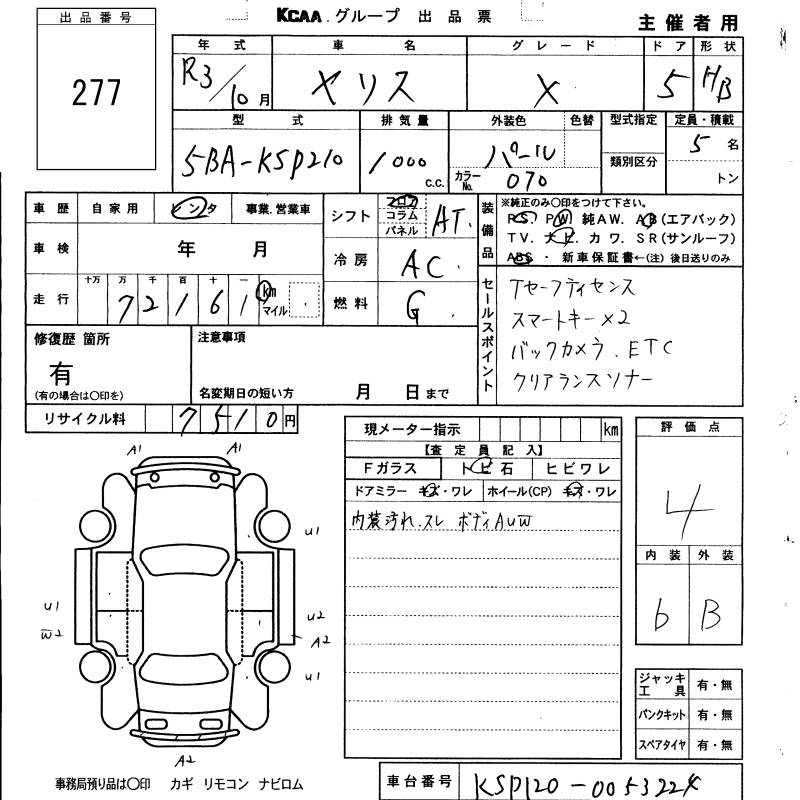 出品番号
277
KCAA.グループ 出品票
主催者用
年式 車名 グレード ドア 形状
R3/10月 ヤリス X 5 HB
型式 排気量 外装色 色替 型式指定 定員・積載
5BA-KSP210 1000 c.c. パール 類別区分 5名
カラーNo. 070 トン
車歴 自家用 レンタ 事業.営業車
シフト フロア コラム パネル AT.
装備品
※純正のみ〇印をつけて下さい。
PS. PW 純AW. AB(エアバック)
TV. ナビ. カワ. SR(サンルーフ)
ABS ・ 新車保証書←(注) 後日送りのみ
車検 年 月
冷房 AC.
走行 十万 万 千 百 十 一
72161 km マイル
燃料 G.
セールスポイント
Tセーフティセンス
スマートキー×2
バックカメラ.ETC
クリアランスソナー
修復歴 箇所
有
(有の場合は〇印を)
注意事項
名変期日の短い方 月 日まで
リサイクル料 7510円
現メーター指示 km
【査定員記入】
Fガラス トビ石 ヒビワレ
ドアミラー キズ・ワレ ホイール(CP) キズ・ワレ
内装汚れ.スレ ボディAUW
評価点
4
内装 外装
6 B
A1 A1
U1
U1
W2
U2
A2
U1
A2
ジャッキ工具 有・無
パンクキット 有・無
スペアタイヤ 有・無
事務局預り品は〇印 カギ リモコン ナビロム
車台番号 KSP120-0053224